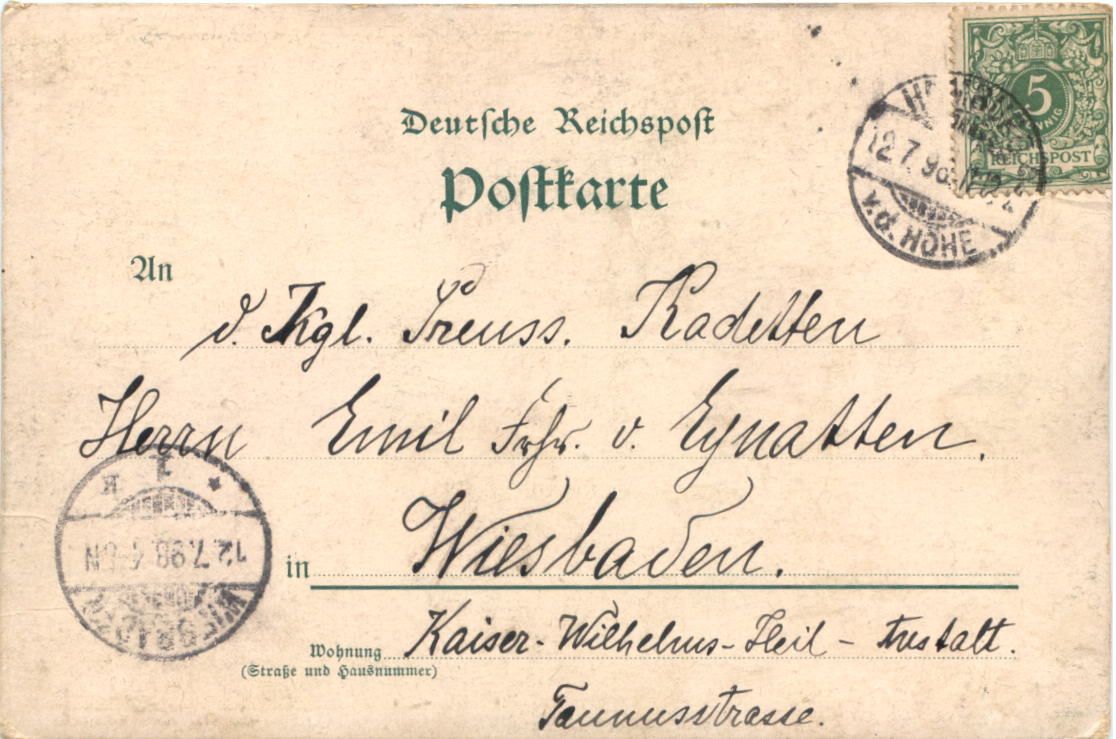 Deutsche Reichspost
Postkarte
5
PFENNIG
REICHSPOST
HOMBURG
12.7.98
v.d. HÖHE
An
d. Kgl. Preuss. Kadetten
Herrn Emil Frhr. v. Eynatten.
in Wiesbaden.
Wohnung Kaiser-Wilhelms-Heil-Anstalt.
(Straße und Hausnummer)
Taunusstrasse.
WIESBADEN
12.7.98.4-5N
1
*